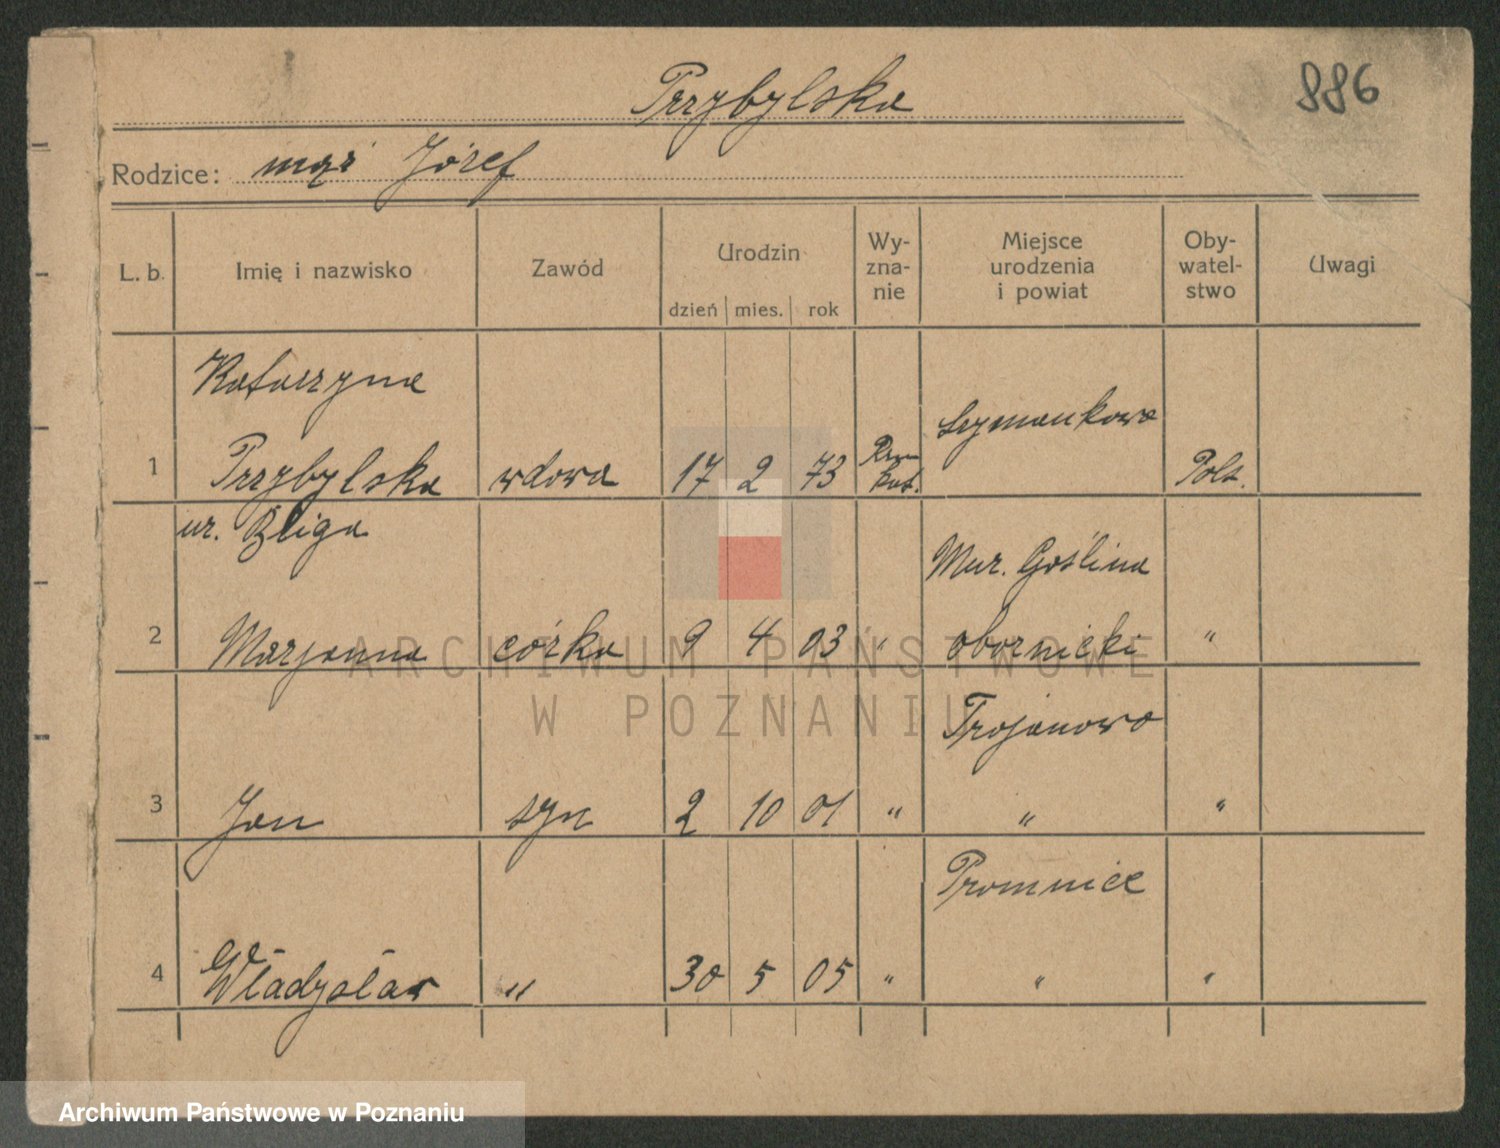 Przybylska
886
Rodzice: mąż Józef
L. b.
Imię i nazwisko
Zawód
Urodzin
dzień mies. rok
Wy-
zna-
nie
Miejsce
urodzenia
i powiat
Oby-
watel-
stwo
Uwagi
Katarzyna
Szymankowo
1 Przybylska wdowa 17 2 73 Rzm Kat. Pols.
ur. Bliga
Mur. Goślina
2 Marjanna córka 9 4 03 " obornicki "
Trojanowo
3 Jan syn 2 10 01 " " "
Promnice
4 Władysław " 30 5 05 " " "
ARCHIWUM PAŃSTWOWE
W POZNANIU
Archiwum Państwowe w Poznaniu